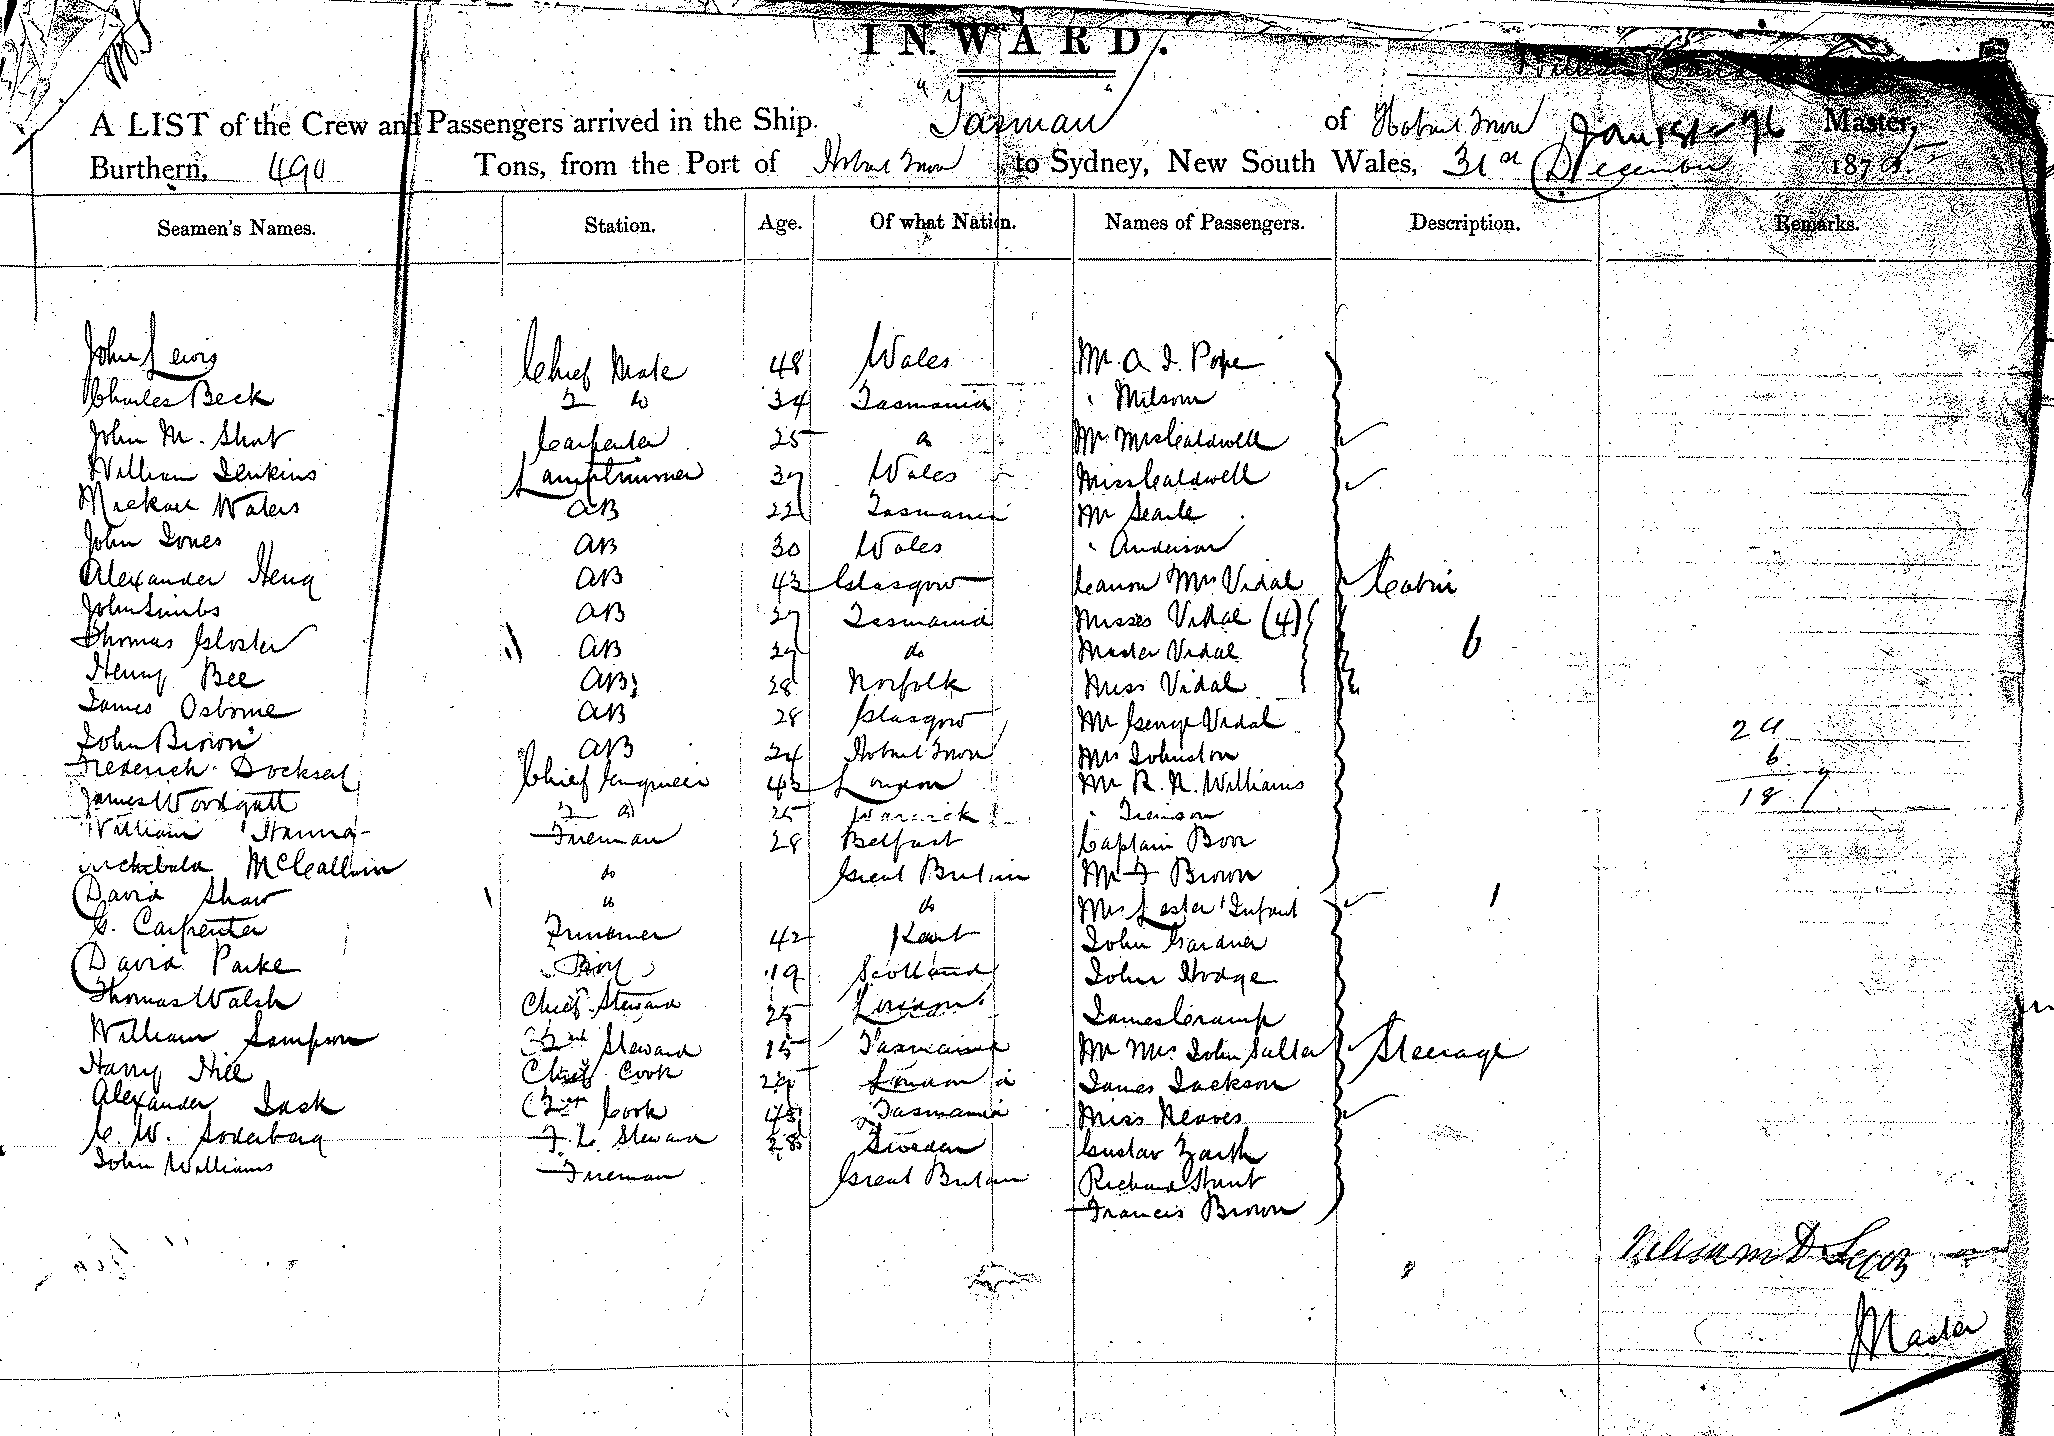 INWARD.
A LIST of the Crew and Passengers arrived in the Ship. "Tasman" of Hobart Town Jany 1st 76 Master,
Burthern, 490 Tons, from the Port of Hobart Town to Sydney, New South Wales, 31st December 1875
Seamen's Names. Station. Age. Of what Nation. Names of Passengers. Description. Remarks.
John Lewis Chief Mate 48 Wales Mr A. I. Pope
Charles Beck 2 do 34 Tasmania " Milsom
John M. Short Carpenter 25 do Mr Mrs Caldwell
William Jenkins Lamptrimmer 37 Wales Miss Caldwell
Waters AB 22 Tasmania Mr Searle
John Jones AB 30 Wales " Anderson
Alexander AB 43 Glasgow Canon Mrs Vidal Cabin
John Limbs AB 27 Tasmania Misses Vidal (4)
Thomas Gloster AB 29 do Master Vidal 6
Henry Bee AB 28 Norfolk Miss Vidal
James Osborne AB 28 Glasgow Mr George Vidal 24
John Brown AB 24 Hobart Town Mrs Johnston 6
Frederick Chief Engineer 43 London Mr R. N. Williams
James Woodgatt 2 do 25 Warwick " 18
William Hanna Fireman 28 Belfast Captain Boon
Archibald McCallum do Great Britain Mr F Brown
David Shaw do do Mrs Lester Infant 1
G. Carpenter 42 Kent John Gardner
David Parke Boy 19 Scotland John Hodge
Thomas Walsh Chief Steward 25 London James Cramp
William Sampson 2nd Steward 15 Tasmania Mr Mrs John Salter Steerage
Harry Hill Chief Cook London James Jackson
Alexander Jack Cook Tasmania Miss Neaves
C. W. Soderberg Steward 28 Sweden Gustav
John Williams Fireman Great Britain Richard Hunt
Francis Brown
William D Lyon
Master